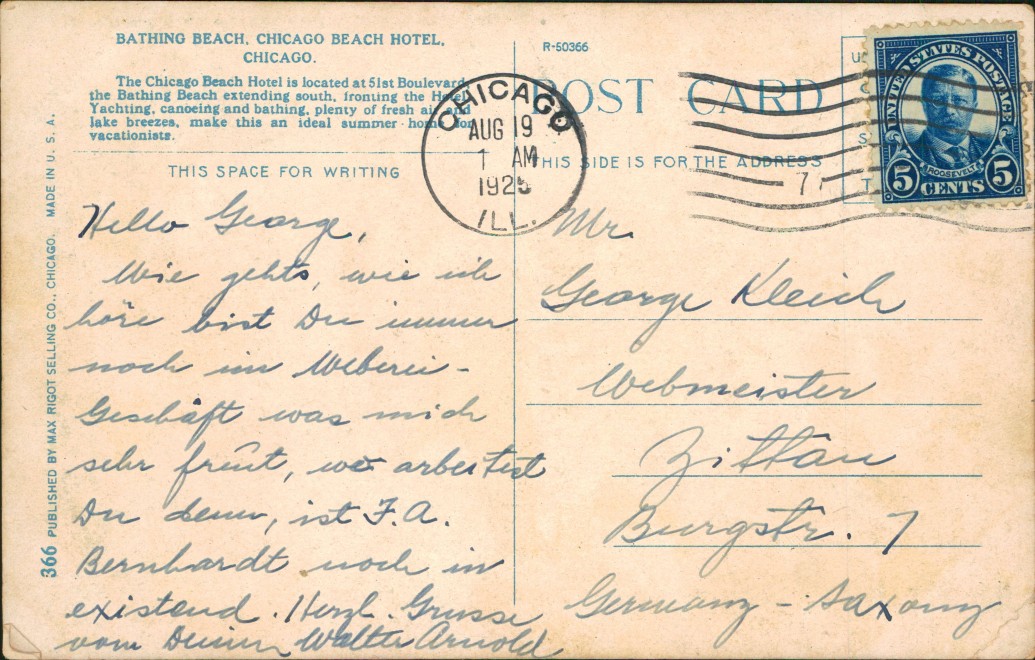 BATHING BEACH, CHICAGO BEACH HOTEL,
CHICAGO.
The Chicago Beach Hotel is located at 51st Boulevard,
the Bathing Beach extending south, fronting the Hotel.
Yachting, canoeing and bathing, plenty of fresh air and
lake breezes, make this an ideal summer home for
vacationists.
THIS SPACE FOR WRITING
R-50366
POST CARD
THIS SIDE IS FOR THE ADDRESS
CHICAGO
AUG 19
1 AM
1925
ILL.
UNITED STATES POSTAGE
ROOSEVELT
5 CENTS 5
366 PUBLISHED BY MAX RIGOT SELLING CO., CHICAGO. MADE IN U. S. A.
Hello George,
Wie gehts, wie ich
höre bist Du immer
noch im Weberei-
Geschäft was mich
sehr freut, wo arbeitest
Du denn, ist F.A.
Bernhardt noch in
existend. Herzl. Grüsse
vom Deinen Walter Arnold
Mr.
George Kleich
Webmeister
Zittau
Burgstr. 7
Germany - Saxony